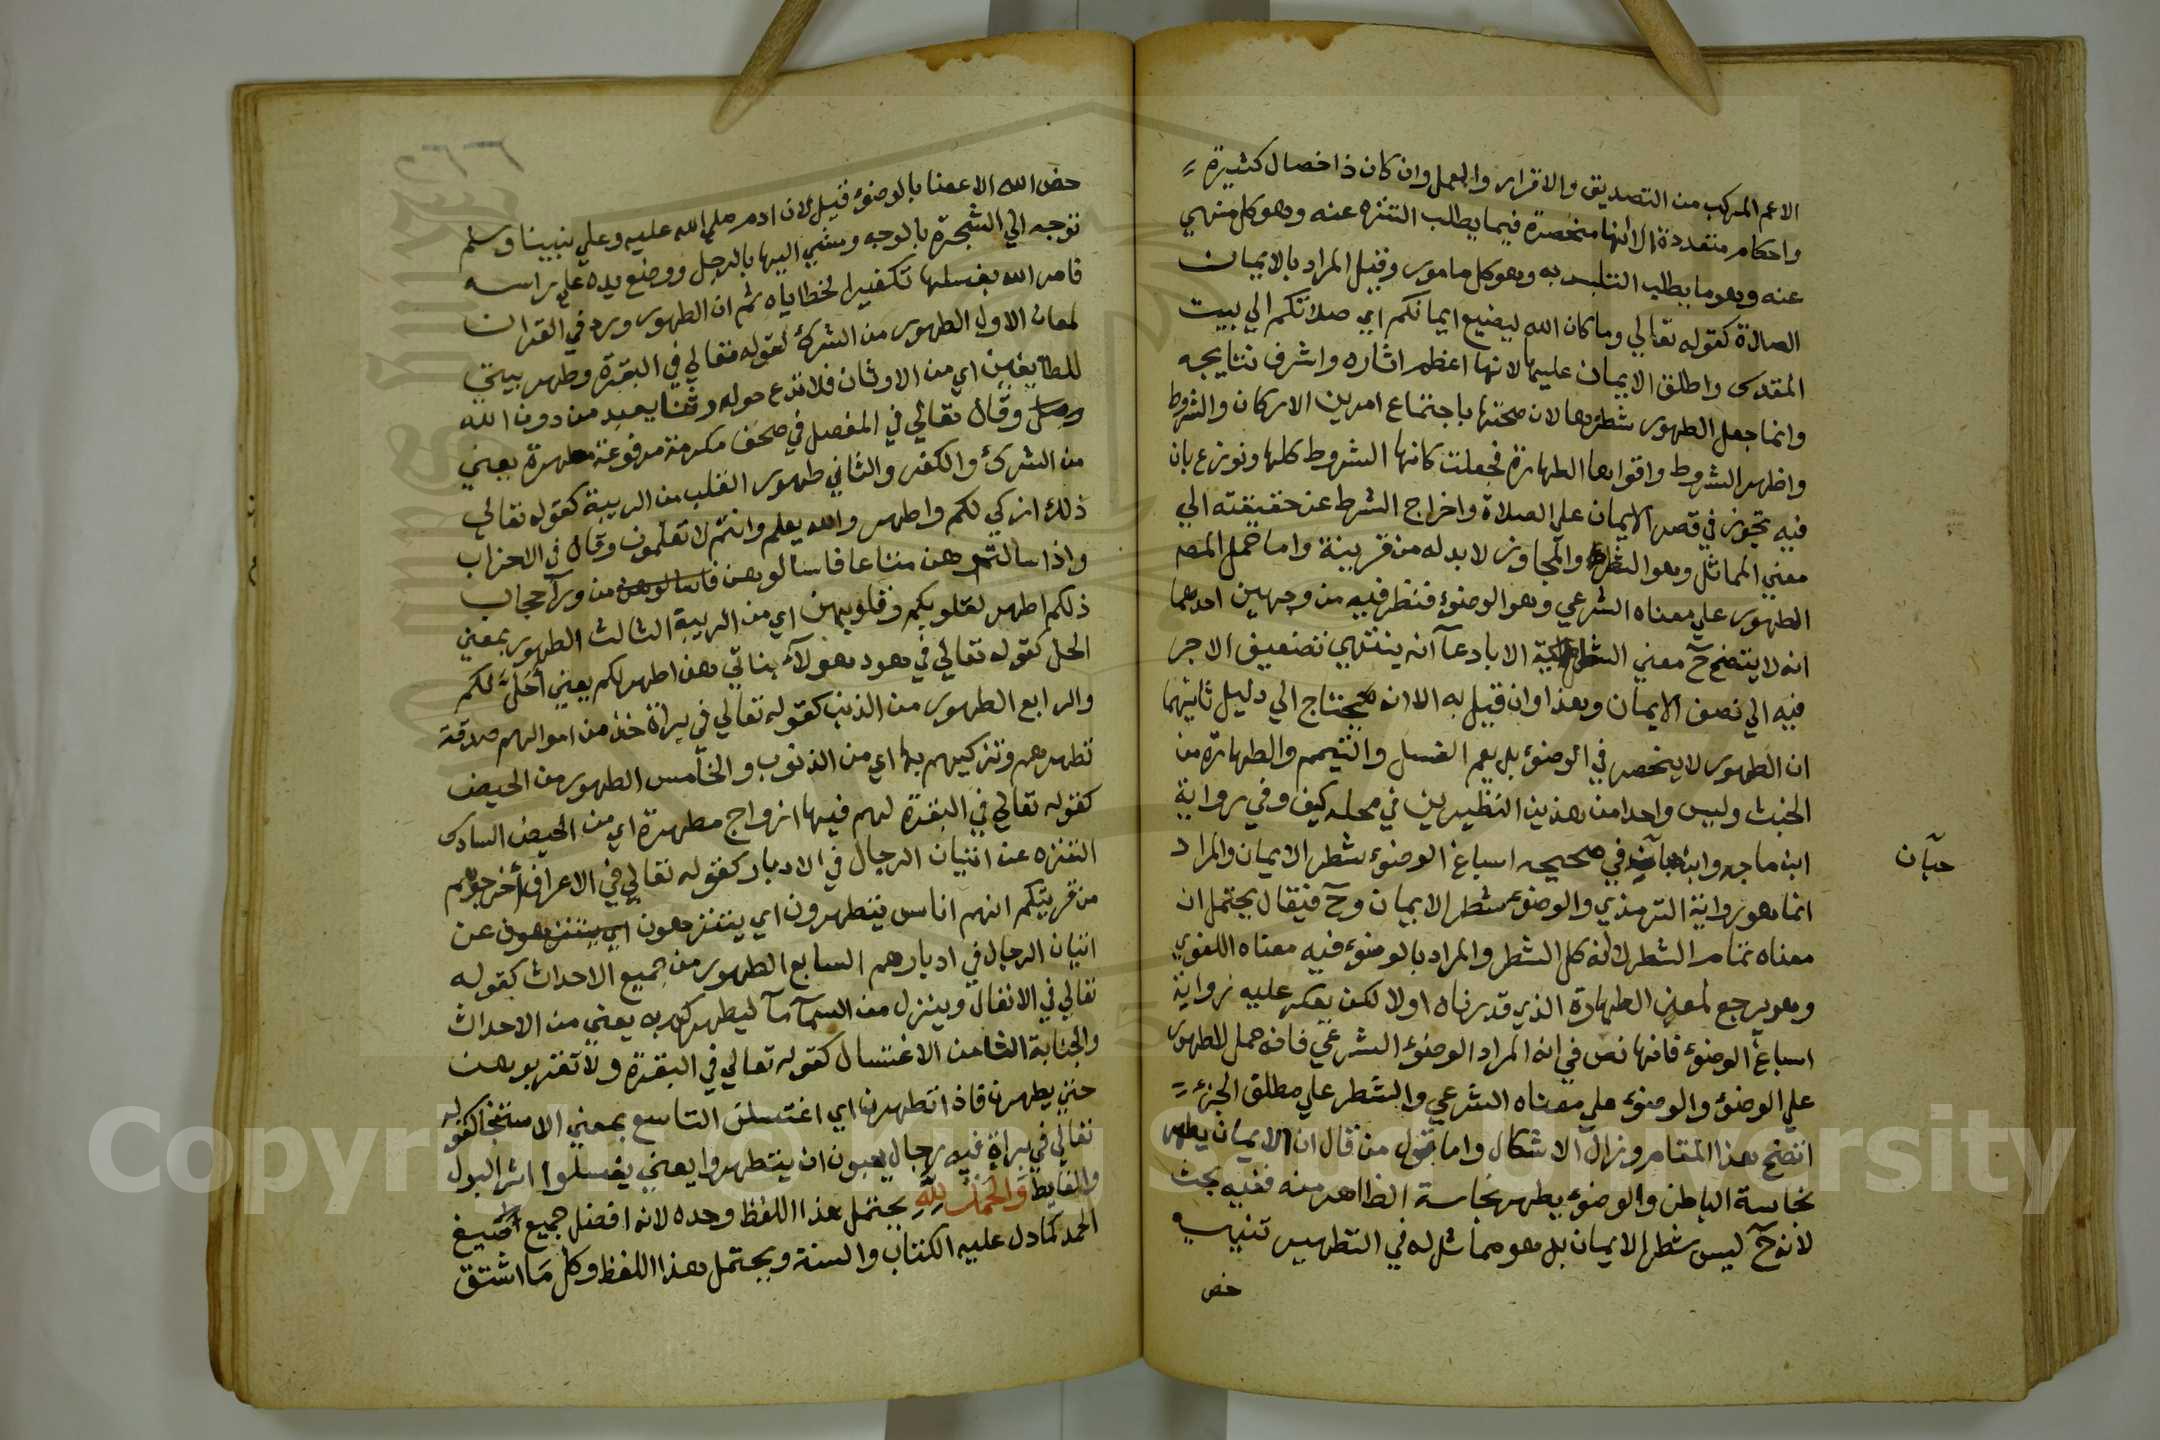 الاعم المركب من التصديق والاقرار والعمل وان كان ذا خصال كثيرة
واحكام متعددة الا انها منحصرة فيما يطلب التنزه عنه وهو كل منهي
عنه وهو ما يطلب التلبس به وهو كل مامور وقيل المراد بالايمان
الصلاة كقوله تعالي وما كان الله ليضيع ايمانكم اي صلاتكم الي بيت
المقدس واطلق الايمان عليها لانها اعظم اثاره واشرف نتايجه
وانما جعل الطهور شطرها لان صحتها باجتماع امرين الاركان والشروط
واظهر الشروط واقواها الطهارة فجعلت كانها الشروط كلها ونوزع بان
فيه تجوز في قصر الايمان علي الصلاة واخراج الشرط عن حقيقته الي
معني المماثل وهو الشطر والمجاوز لا بد له من قرينة واما حمل المص
الطهور علي معناه الشرعي وهو الوضوء فنظر فيه من وجهين احدهما
انه لا يتضح ح معني الشطرية الا بادعآ انه ينتهي تضعيف الاجر
فيه الي نصف الايمان وهذا وان قيل به الا انه يحتاج الي دليل ثانيهما
ان الطهور لا ينحصر في الوضوء بل يعم الغسل والتيمم والطهارة من
الخبث وليس واحدا من هذين النظيرين في محله كيف وفي رواية
ابن ماجه وابن حبان في صحيحه اسباغ الوضوء شطر الايمان والمراد
حبّان
انما هو رواية الترمذي والوضوء شطر الايمان وح فيقال يحتمل ان
معناه تمام الشطر لا انه كل الشطر والمراد بالوضوء فيه معناه اللغوي
وهو يرجع لمعني الطهارة الذي قدرناه اولا لكن يعكر عليه رواية
اسباغ الوضوء فانها نص في انه المراد الوضوء الشرعي فانه حمل الطهور
علي الوضوء والوضوء علي معناه الشرعي والشطر علي مطلق الجزء
اتضح هذا المقام وزال الاشكال واما قول من قال ان الايمان يطهر
نجاسة الباطن والوضوء يطهر نجاسة الظاهر منه ففيه بحث
لانه ح ليس شطر الايمان بل هو مماثل له في التطهير تنبيه
خص
خص الله الاعضا بالوضوء قيل لان ادم صلي الله عليه وعلي نبينا وسلم
توجه الي الشجرة بالوجه ومشي اليها بالرجل ووضع يده علي راسه
فامر الله بغسلها تكفيرا لخطاياه ثم ان الطهور ورد في القران
لمعان الاول الطهور من الشرك لقوله تعالي في البقرة وطهر بيتي
للطايفين اي من الاوثان فلا تدع حوله وثنا يعبد من دون الله
وقال تعالي في المفصل في صحف مكرمة مرفوعة مطهرة يعني
من الشرك والكفر والثاني طهور القلب من الريبة كقوله تعالي
ذلك ازكي لكم واطهر والله يعلم وانتم لا تعلمون وقال في الاحزاب
واذا سالتموهن متاعا فاسالوهن فاسالوهن من ورآ حجاب
ذلكم اطهر لقلوبكم وقلوبهن اي من الريبة الثالث الطهور بمعني
الحل كقوله تعالي في هود هولآء بناتي هن اطهر لكم يعني أحَلّ لكم
والرابع الطهور من الذنب كقوله تعالي في براة خذ من اموالهم صدقة
تطهرهم وتزكيهم بها اي من الذنوب والخامس الطهور من الحيض
كقوله تعالي في البقرة لهم فيها ازواج مطهرة اي من الحيض السادس
التنزه عن اتيان الرجال في الادبار كقوله تعالي في الاعراف أخرجوهم
من قريتكم انهم اناس يتطهرون اي يتنزهون اي يتنزهون عن
اتيان الرجال في ادبارهم السابع الطهور من جميع الاحداث كقوله
تعالي في الانفال وينزل من السمآ مآ ليطهركم به يعني من الاحداث
والجنابة الثامن الاغتسال كقوله تعالي في البقرة ولا تقربوهن
حتي يطهرن فاذا تطهرن اي اغتسلن التاسع بمعني الاستنجا كقوله
تعالي في براة فيه رجال يحبون ان يتطهروا يعني يغسلوا اثر البول
والغايط وَالحَمْدُ لِلّهِ يحتمل هذا اللفظ وحده لانه افضل جميع صيغ
الحمد كما دل عليه الكتاب والسنة ويحتمل هذا اللفظ وكل مَا اشتق
Copyright © King Saud University